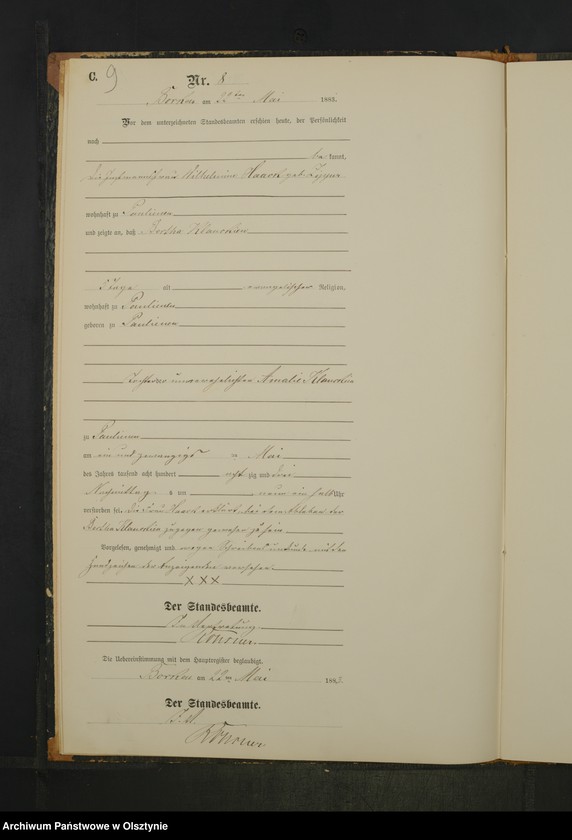 C. 9
Nr. 8
am 22ten Mai 1883.
Vor dem unterzeichneten Standesbeamten erschien heute, der Persönlichkeit
nach
be kannt,
die Wilhelmine Haack geb.
wohnhaft zu Paulinen
und zeigte an, daß Bertha
Tage alt evangelischer Religion,
wohnhaft zu Paulinen
geboren zu Paulinen
Tochter der unverehelichten Amalie
zu Paulinen
am ein und zwanzigsten Mai
des Jahres tausend acht hundert acht zig und drei
Nachmittags um neun ein halb Uhr
verstorben sei. Die Frau Haack erklärt, bei dem Ableben der
Bertha zugegen gewesen zu sein.
Vorgelesen, genehmigt und wegen Schreibens unkunde mit den
Handzeichen der Anzeigenden versehen.
XXX
Der Standesbeamte.
In Vertretung
Die Uebereinstimmung mit dem Hauptregister beglaubigt.
am 22ten Mai 1883.
Der Standesbeamte.
I. V.
Archiwum Państwowe w Olsztynie